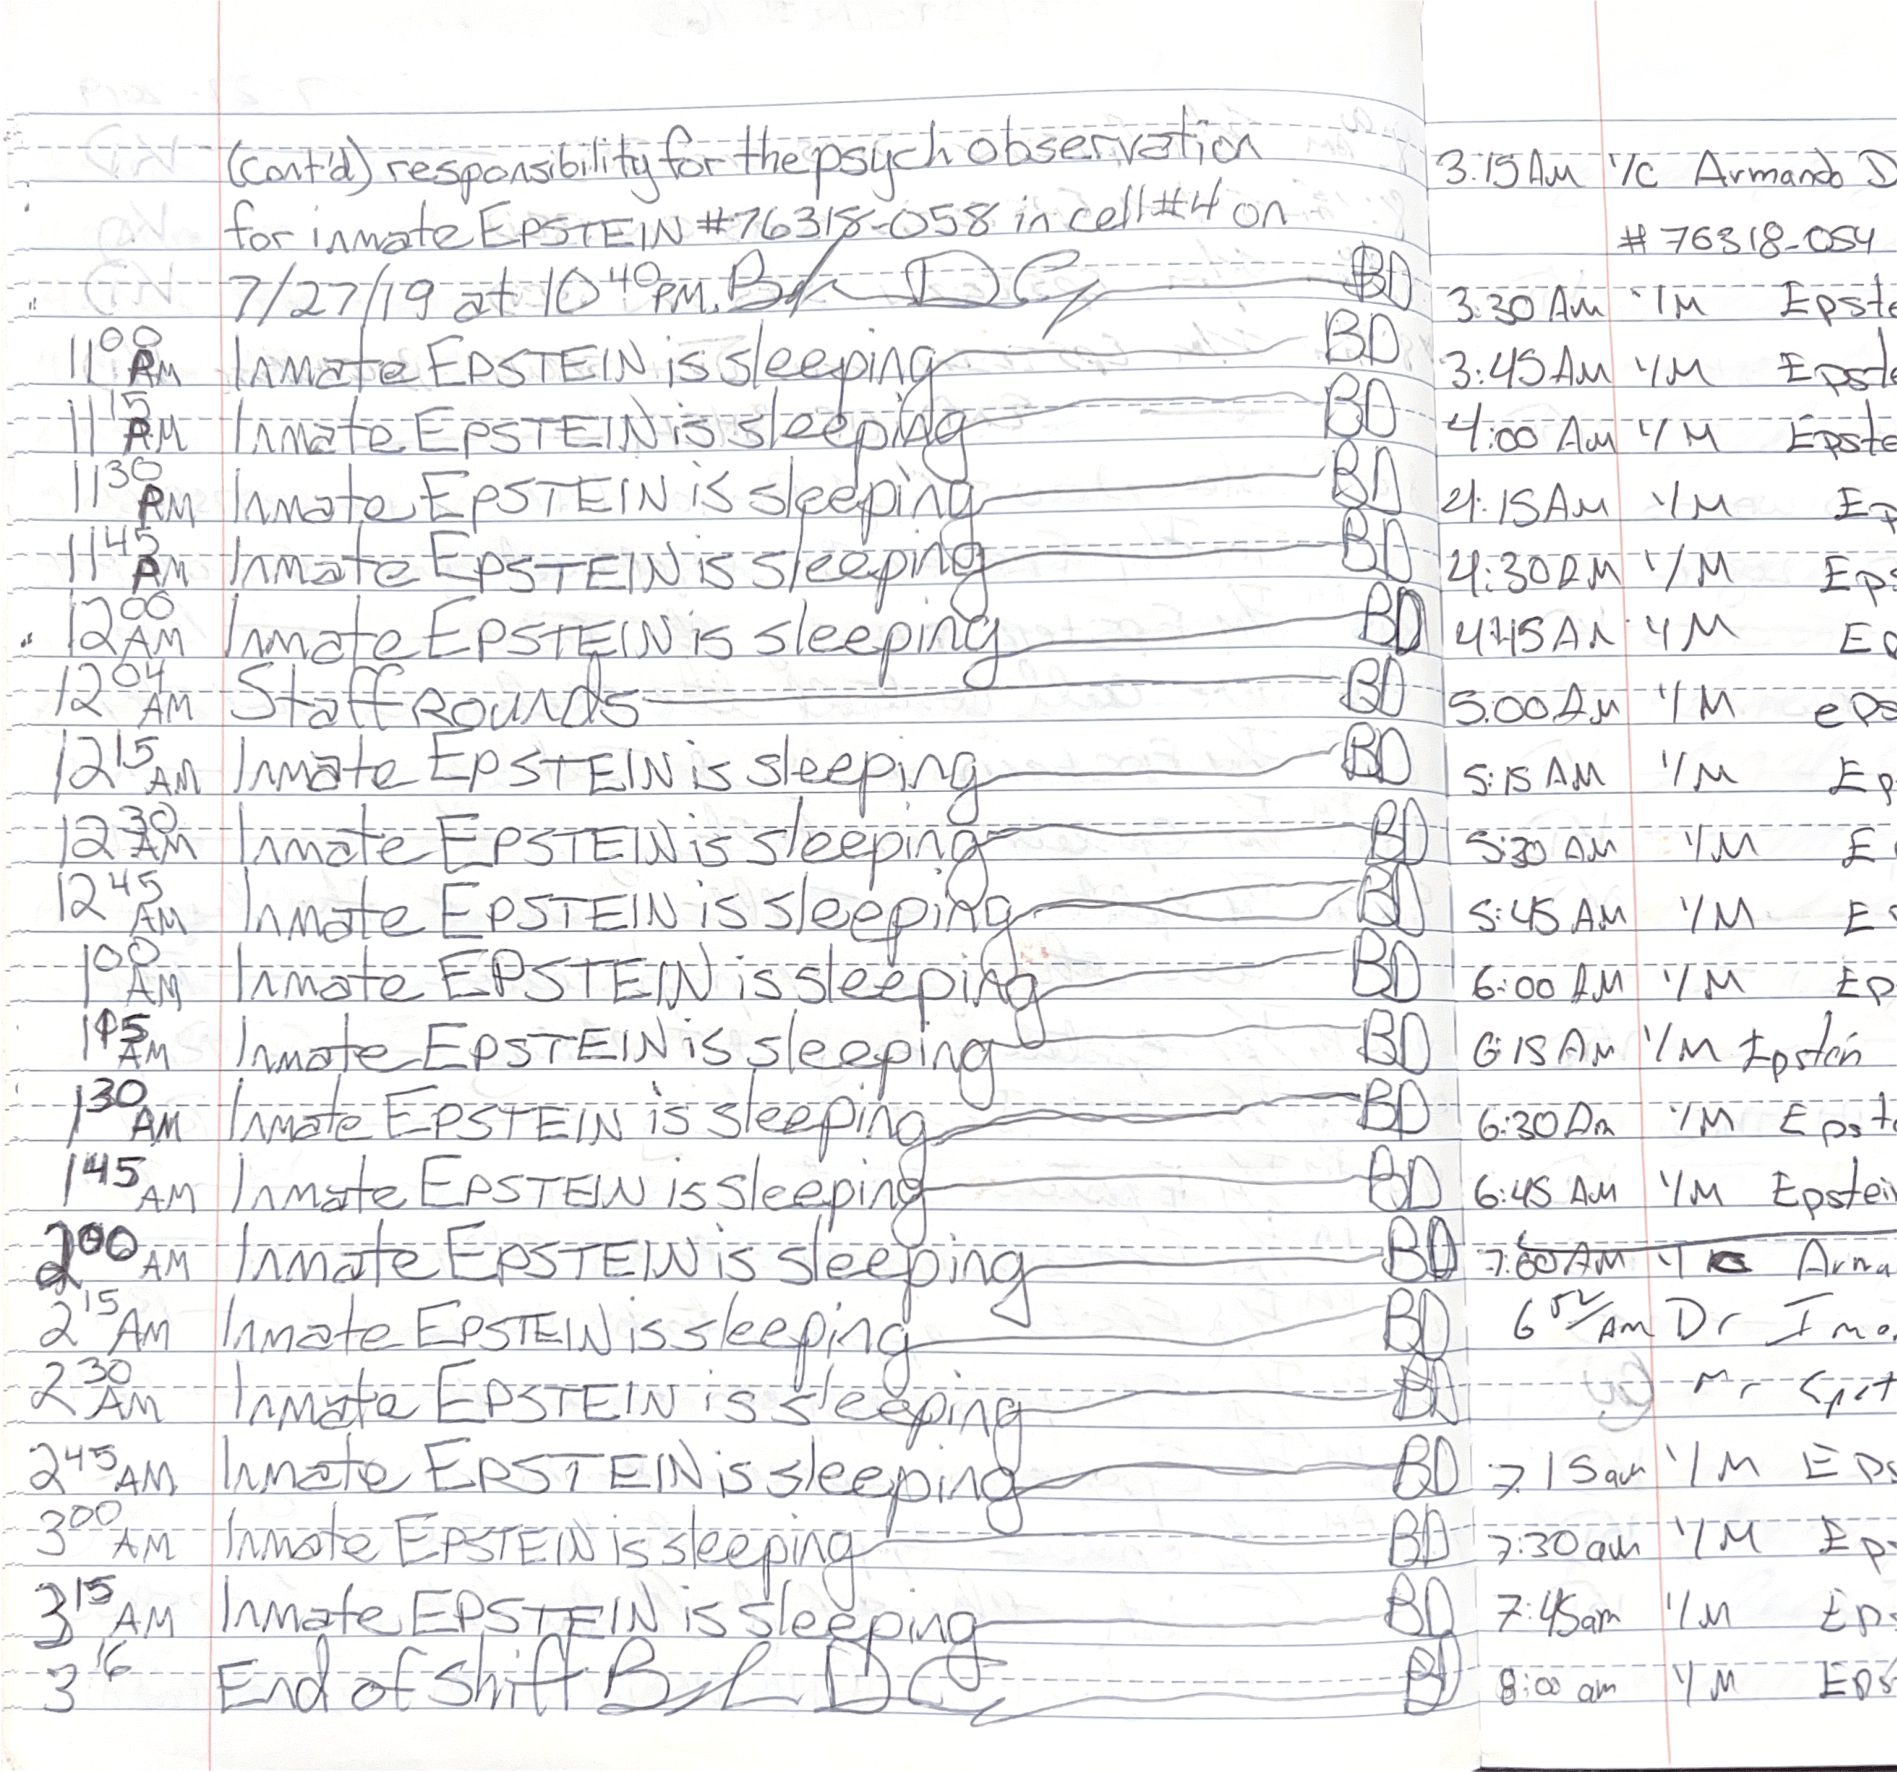 (cont'd) responsibility for the psych observation
for inmate EPSTEIN #76318-058 in cell #4 on
7/27/19 at 10 40 PM. BD
11 00 PM Inmate EPSTEIN is sleeping BD
11 15 PM Inmate EPSTEIN is sleeping BD
11 30 PM Inmate EPSTEIN is sleeping BD
11 45 PM Inmate EPSTEIN is sleeping BD
12 00 AM Inmate EPSTEIN is sleeping BD
12 04 AM Staff Rounds BD
12 15 AM Inmate EPSTEIN is sleeping BD
12 30 AM Inmate EPSTEIN is sleeping BD
12 45 AM Inmate EPSTEIN is sleeping BD
1 00 AM Inmate EPSTEIN is sleeping BD
1 15 AM Inmate EPSTEIN is sleeping BD
1 30 AM Inmate EPSTEIN is sleeping BD
1 45 AM Inmate EPSTEIN is sleeping BD
2 00 AM Inmate EPSTEIN is sleeping BD
2 15 AM Inmate EPSTEIN is sleeping BD
2 30 AM Inmate EPSTEIN is sleeping BD
2 45 AM Inmate EPSTEIN is sleeping BD
3 00 AM Inmate EPSTEIN is sleeping BD
3 15 AM Inmate EPSTEIN is sleeping BD
3 16 End of Shift BD
3:15 AM I/C Armando D
# 76318-054
3:30 AM I/M Epste
3:45 AM I/M Epste
4:00 AM I/M Epste
4:15 AM I/M Ep
4:30 AM I/M Eps
4:45 AM I/M Ep
5:00 AM I/M eps
5:15 AM I/M Ep
5:30 AM I/M E
5:45 AM I/M E
6:00 AM I/M Ep
6:15 AM I/M Epstein
6:30 Am I/M Epste
6:45 AM I/M Epstein
7:00 AM I/C Arma
6 52 AM Dr Imo
Mr
7:15 am I/M Eps
7:30 am I/M Ep
7:45 am I/M Eps
8:00 am I/M Eps